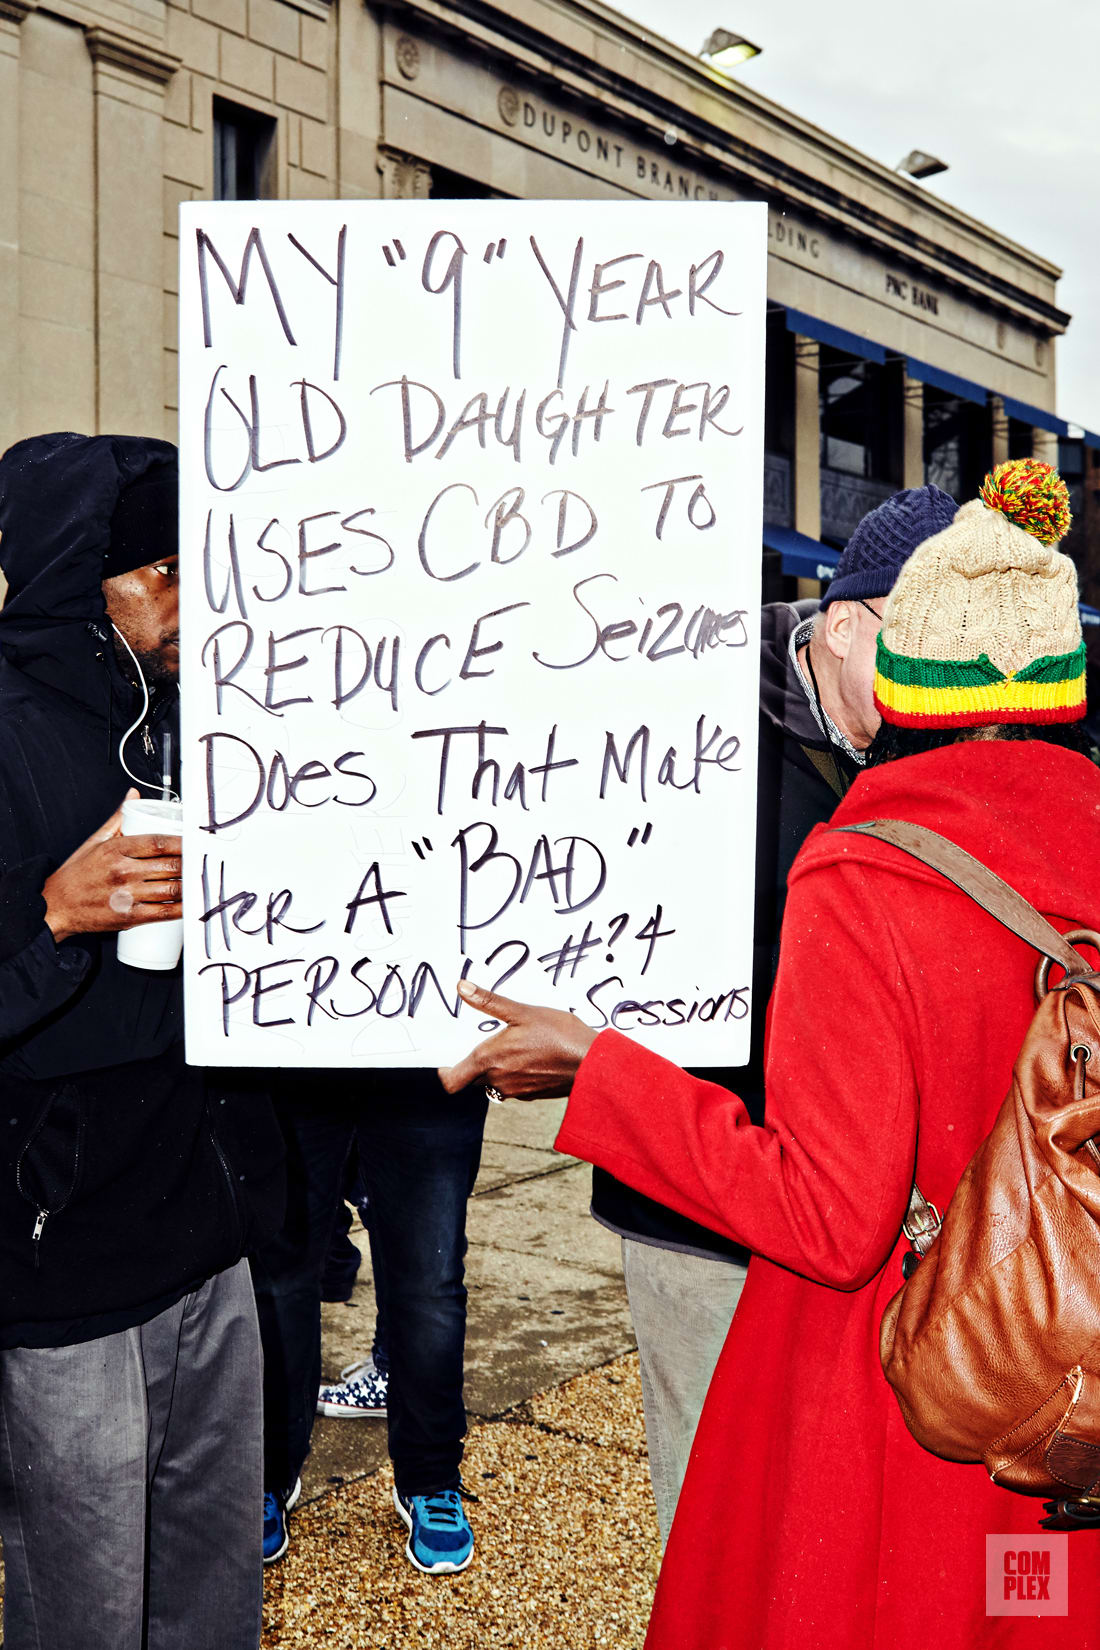 DUPONT BRANCH
LDING
PNC BANK
MY "9" YEAR
OLD DAUGHTER
USES CBD TO
REDUCE Seizures
Does That Make
Her A "BAD"
PERSON? #?4
.Sessions
COM
PLEX